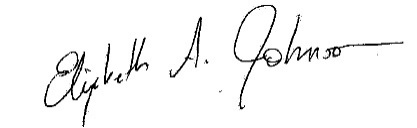 Elizabeth A. Johnson